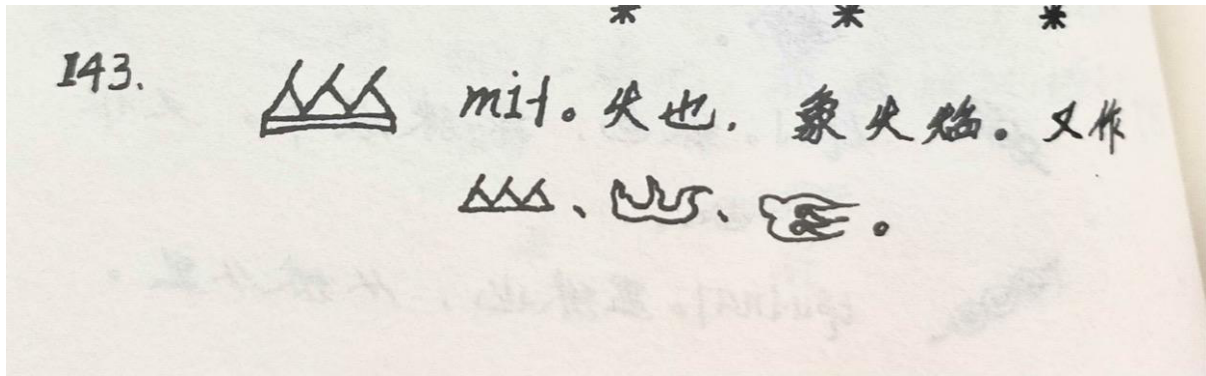 * * *
143. mit。火也. 象火焰。又作
、 、 。